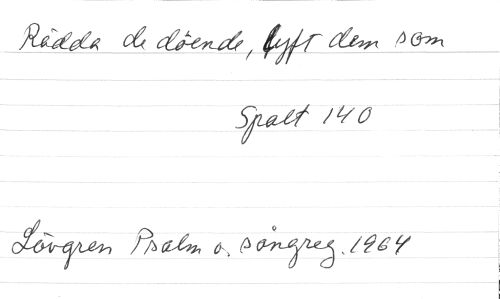 Rädda de döende, lyft dem som
Spalt 140
Lövgren Psalm o. sångreg. 1964